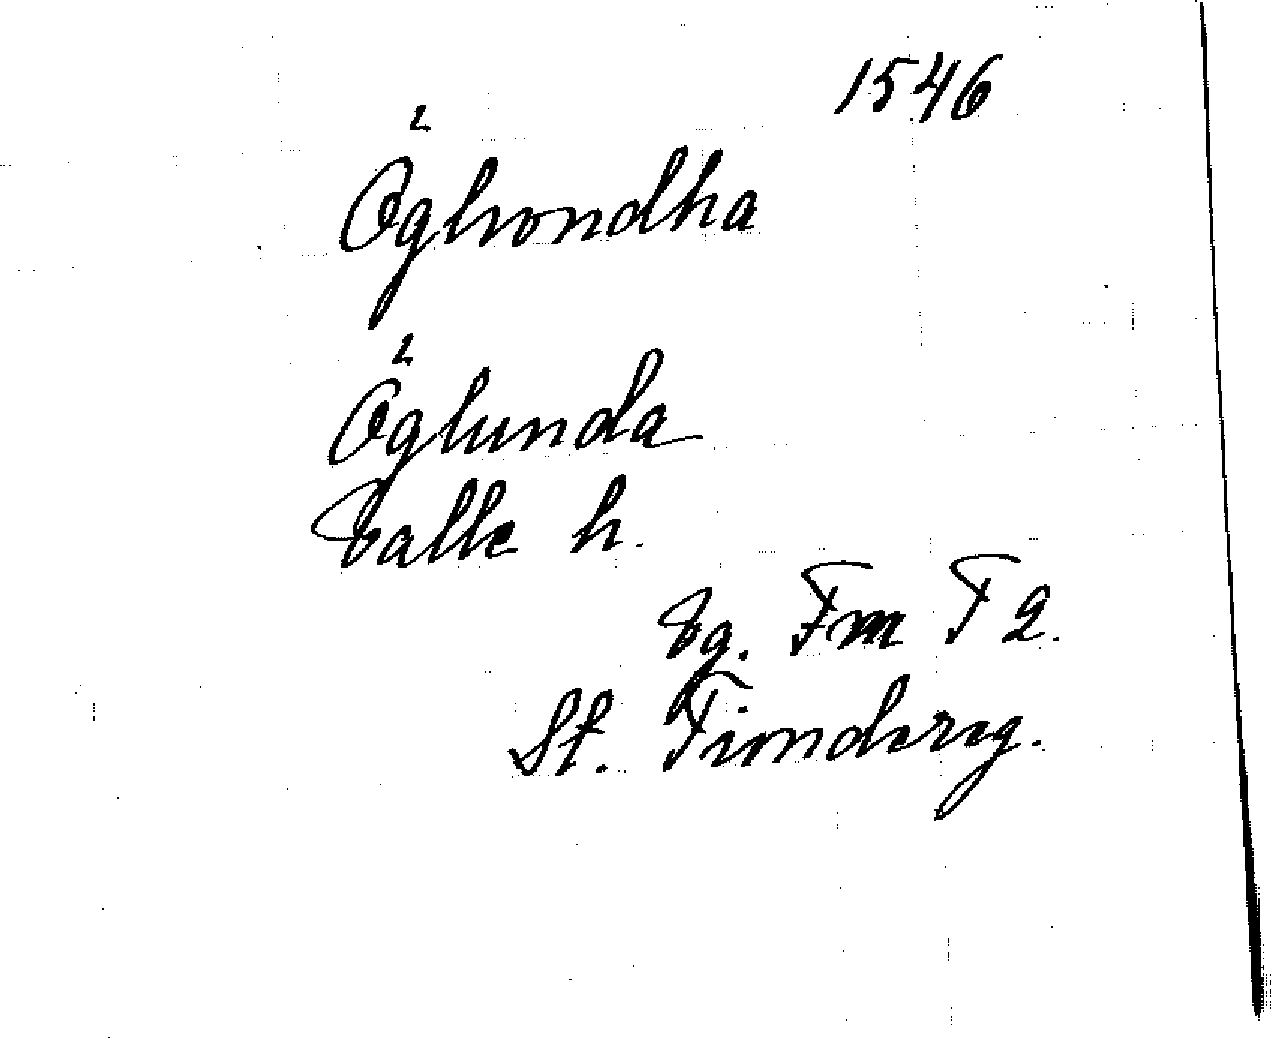 1546
Öglwondha
Öglunda
Valle h.
Vg. Fm F 2.
St. Tiondereg.